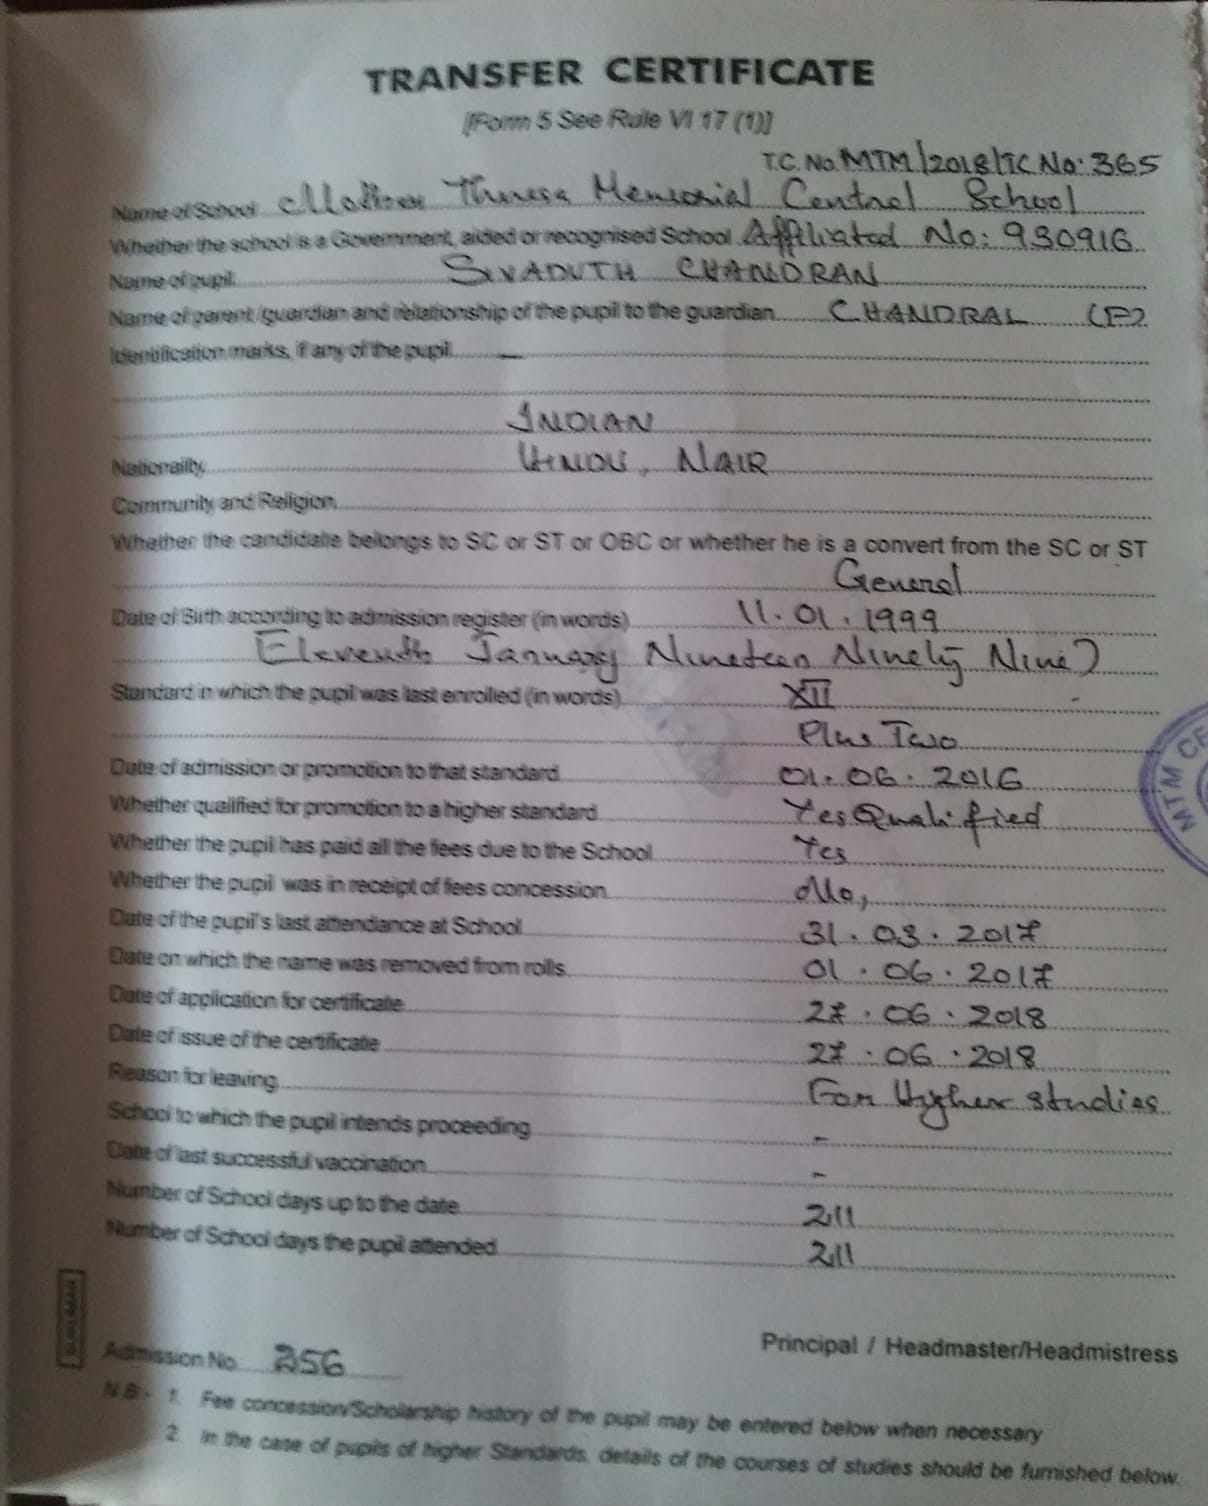 TRANSFER CERTIFICATE
[Form 5 See Rule VI 17 (1)]
T.C. No. MTM/2018/TC No: 365
Name of School Mother Theresa Memorial Central School
Whether the school is a Government, aided or recognised School Affiliated No: 930916
Name of pupil SIVADUTH CHANDRAN
Name of parent/guardian and relationship of the pupil to the guardian CHANDRAL (F)
Identification marks, if any of the pupil —
INDIAN
Nationality HINDU, NAIR
Community and Religion
Whether the candidate belongs to SC or ST or OBC or whether he is a convert from the SC or ST
General
Date of Birth according to admission register (in words) 11.01.1999
Eleventh January Nineteen Ninety Nine)
Standard in which the pupil was last enrolled (in words) XII
Plus Two
Date of admission or promotion to that standard 01.06.2016
Whether qualified for promotion to a higher standard Yes Qualified
Whether the pupil has paid all the fees due to the School Yes
Whether the pupil was in receipt of fees concession No,
Date of the pupil's last attendance at School 31.03.2017
Date on which the name was removed from rolls 01.06.2017
Date of application for certificate 27.06.2018
Date of issue of the certificate 27.06.2018
Reason for leaving For Higher studies
School to which the pupil intends proceeding -
Date of last successful vaccination -
Number of School days up to the date 211
Number of School days the pupil attended 211
MTM CE
Principal / Headmaster/Headmistress
Admission No. 256
N.B:- 1. Fee concession/Scholarship history of the pupil may be entered below when necessary
2. In the case of pupils of higher Standards, details of the courses of studies should be furnished below.